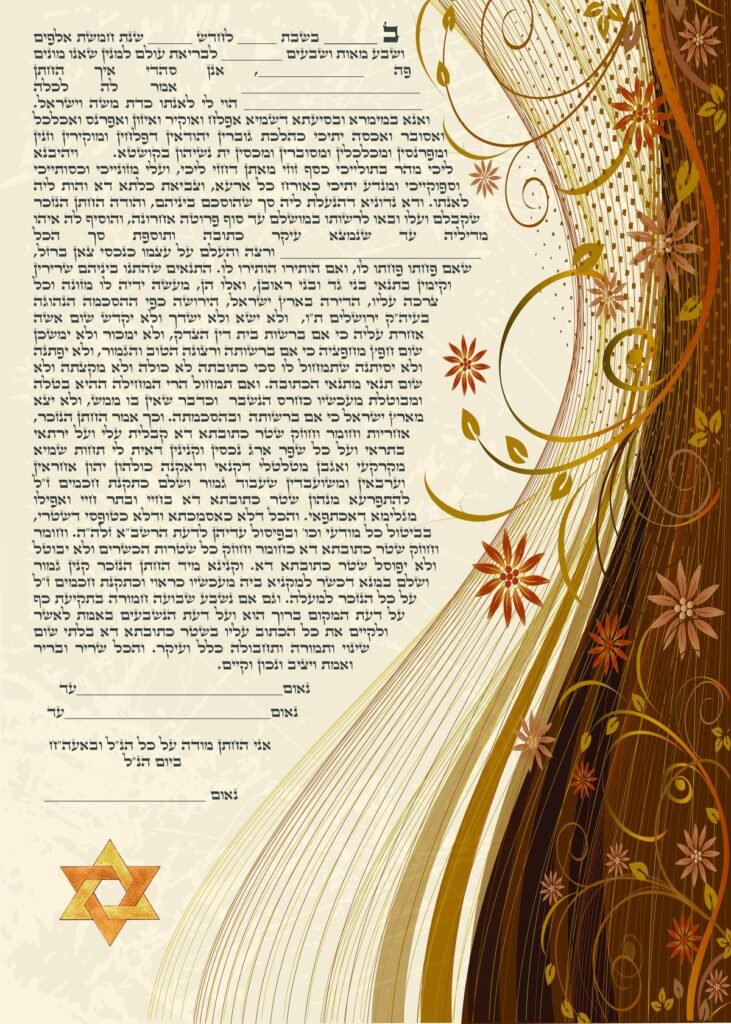 ב _____ בשבת _____ לחדש _____ שנת חמשת אלפים
ושבע מאות ושבעים _____ לבריאת עולם למנין שאנו מונים
פה _____, אנן סהדי איך החתן
_____ אמר לה לכלה
_____ הוי לי לאנתו כדת משה וישראל.
ואנא במימרא ובסיעתא דשמיא אפלח ואוקיר ואיזון ואפרנס ואכלכל
ואסובר ואכסה יתיכי כהלכת גוברין יהודאין דפלחין ומוקירין וזנין
ומפרנסין ומכלכלין ומסוברין ומכסין ית נשיהון בקושטא. ויהיבנא
ליכי מהר בתולייכי כסף זוזי מאתן דחזי ליכי, ועלי מזונייכי וכסותייכי
וסיפוקייכי ומנדע יתיכי כאורח כל ארעא, וצביאת כלתא דא והות ליה
לאנתו. ודא נדוניא דהנעלת ליה סך שהוסכם ביניהם, והודה החתן הנזכר
שקבלם ועלו ובאו לרשותו במושלם עד סוף פרוטה אחרונה, והוסיף לה איהו
מדיליה עד שנמצא עיקר כתובה ותוספת סך הכל
_____ ורצה והעלם על עצמו כנכסי צאן ברזל,
שאם פחתו פחתו לו, ואם הותירו הותירו לו. התנאים שהתנו ביניהם שרירין
וקימין בתנאי בני גד ובני ראובן, ואלו הן, מעשה ידיה לו מזונה וכל
צרכה עליו, הדירה בארץ ישראל, הירושה כפי ההסכמה הנהוגה
בעיה״ק ירושלים ת״ו, ולא ישא ולא ישדך ולא יקדש שום אשה
אחרת עליה כי אם ברשות בית דין הצדק, ולא ימכור ולא ימשכן
שום חפץ מחפציה כי אם ברשותה ורצונה הטוב והגמור, ולא יפתנה
ולא יסיתנה שתמחול לו סכי כתובתה לא כולה ולא מקצתה ולא
שום תנאי מתנאי הכתובה. ואם תמחול הרי המחילה ההיא בטלה
ומבוטלת מעכשיו כחרס הנשבר וכדבר שאין בו ממש, ולא יצא
מארץ ישראל כי אם ברשותה ובהסכמתה. וכך אמר החתן הנזכר,
אחריות וחומר וחוזק שטר כתובתא דא קבלית עלי ועל ירתאי
בתראי ועל כל שפר ארג נכסין וקנינין דאית לי תחות שמיא
מקרקעי ואגבן מטלטלי דקנאי ודאקנה כולהון יהון אחראין
וערבאין ומשועבדין שעבוד גמור ושלם כתקנת חכמים ז״ל
להתפרעא מנהון שטר כתובתא דא בחיי ובתר חיי ואפילו
מגלימא דאכתפאי. והכל דלא כאסמכתא ודלא כטופסי דשטרי,
בביטול כל מודעי וכו׳ ובפיסול עדיהן לדעת הרשב״א זלה״ה. וחומר
וחוזק שטר כתובתא דא כחומר וחוזק כל שטרות הכשרים ולא יבוטל
ולא יפוסל שטר כתובתא דא. וקנינא מיד החתן הנזכר קנין גמור
ושלם במנא דכשר למקניא ביה מעכשיו כראוי וכתקנת חכמים ז״ל
על כל הנזכר למעלה. וגם אם נשבע שבועה חמורה בתקיעת כף
על דעת המקום ברוך הוא ועל דעת הנשבעים באמת לאשר
ולקיים את כל הכתוב עליו בשטר כתובתא דא בלתי שום
שינוי ותמורה ותחבולה כלל ועיקר. והכל שריר ובריר
ואמת ויציב ונכון וקיים.
נאום_____עד
נאום_____עד
אני החתן מודה על כל הנ״ל ובאעה״ח
ביום הנ״ל
נאום _____